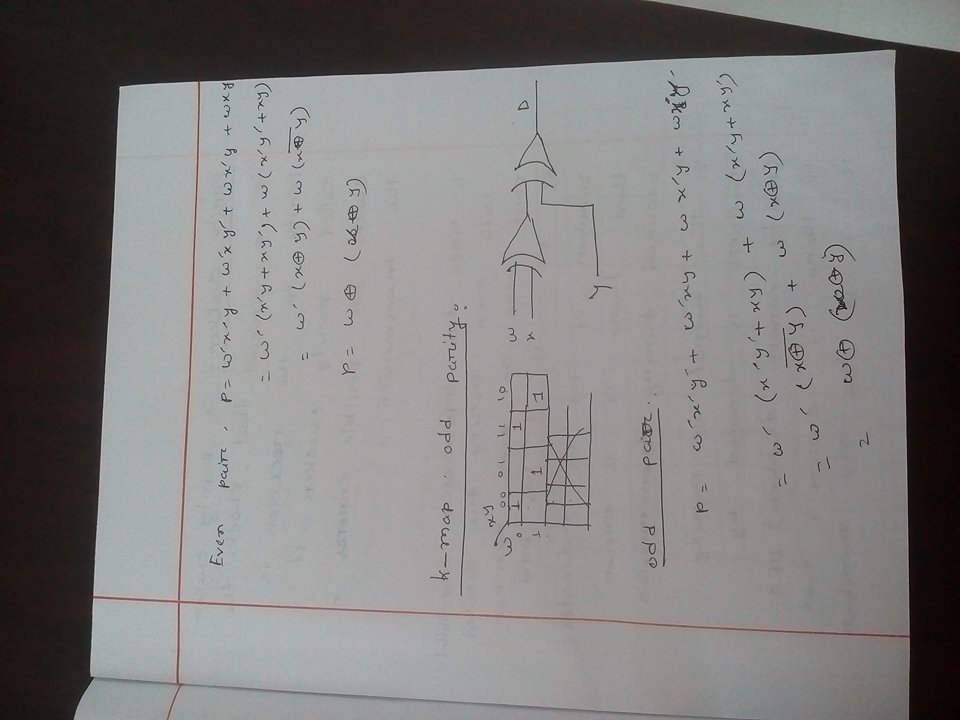 Even pair. P = w'x'y + w'xy' + wx'y + wxy
= w' (x'y + xy') + w (x'y' + xy)
= w' (x⊕y) + w (x̅⊕̅y̅)
P = w ⊕ (x⊕y)
k-map. odd parity:
xy
w 00 01 11 10
0 1 1
1 1 1
w
x
Y
D
odd pair.
P = w'x'y' + w'xy + wx'y + wxy'
= w' (x'y' + xy) + w (x'y + xy')
= w' (x̅⊕̅y̅) + w (x⊕y)
= w⊕ (x⊕y)